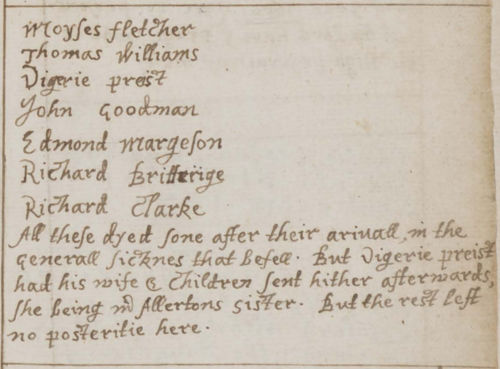 Moyses fletcher
Thomas Williams
Digerie preist
John Goodman
Edmond Margeson
Richard Britterige
Richard Clarke
All these dyed sone after their arivall, in the
Generall sicknes that befell. But Digerie preist
had his wife & children sent hither afterwards,
she being mr Allertons sister. But the rest left
no posteritie here.